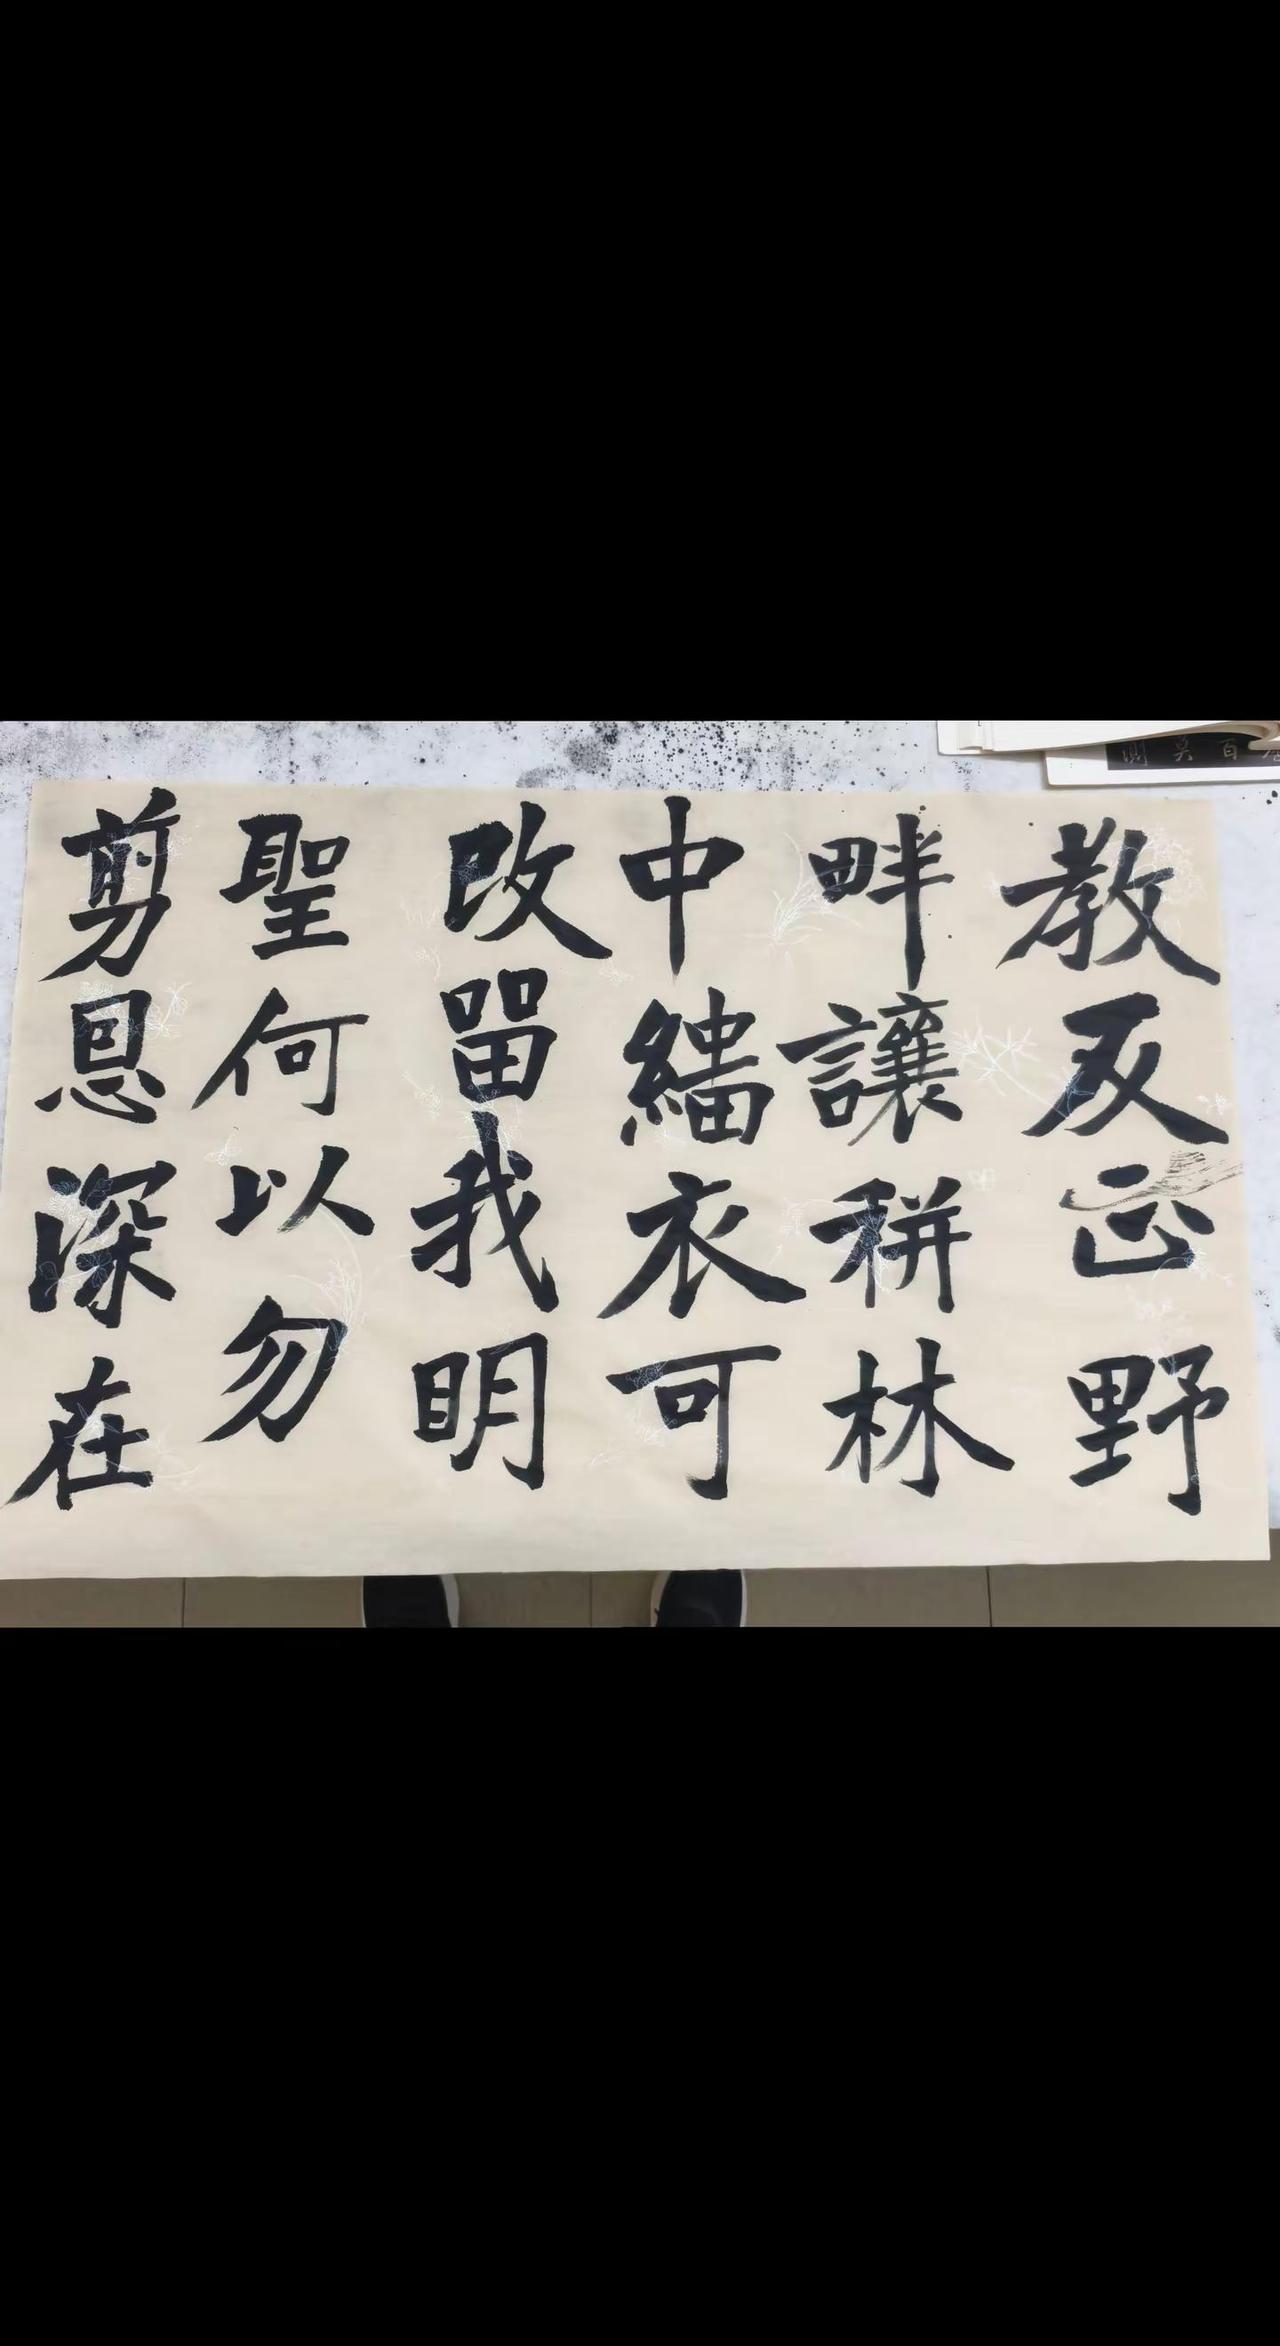 教反正野
畔讓耕林
中繣衣可
改留我明
聖何以勿
剪恩深在
百
莫
測